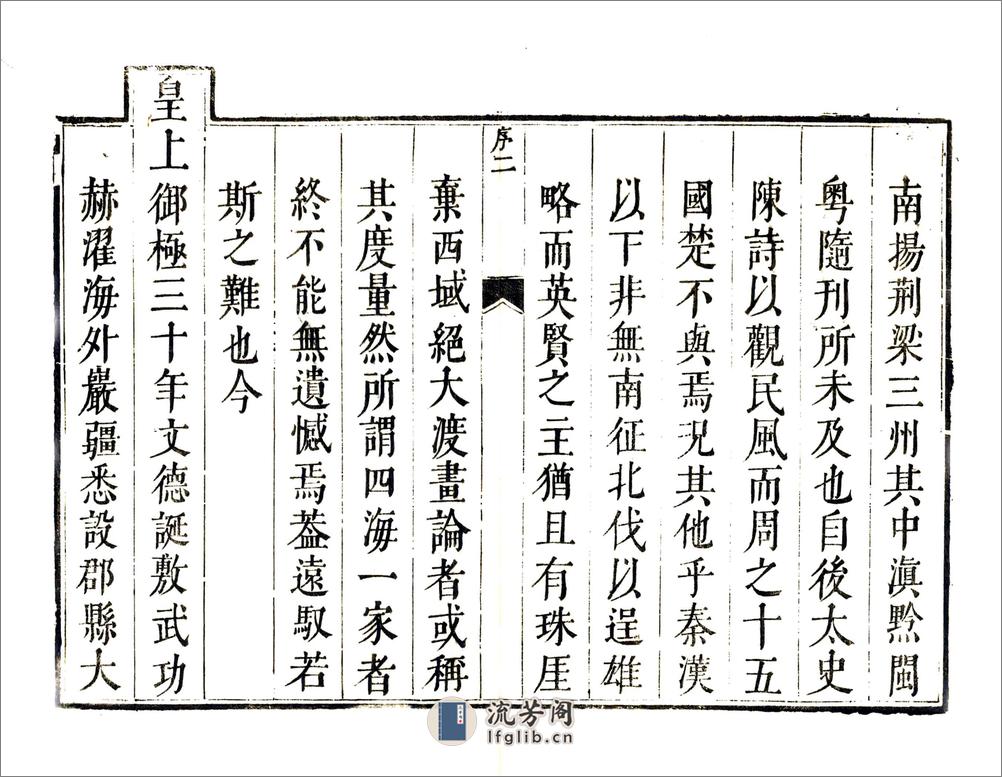 南揚荆梁三州其中滇黔閩
粤隨刊所未及也自後太史
陳詩以觀民風而周之十五
國楚不與焉況其他乎秦漢
以下非無南征北伐以逞雄
略而英賢之主猶且有珠厓
序二
棄西域絕大渡畫論者或稱
其度量然所謂四海一家者
終不能無遺憾焉葢遠馭若
斯之難也今
皇上御極三十年文德誕敷武功
赫濯海外嚴疆悉設郡縣大
流芳阁
lfglib.cn